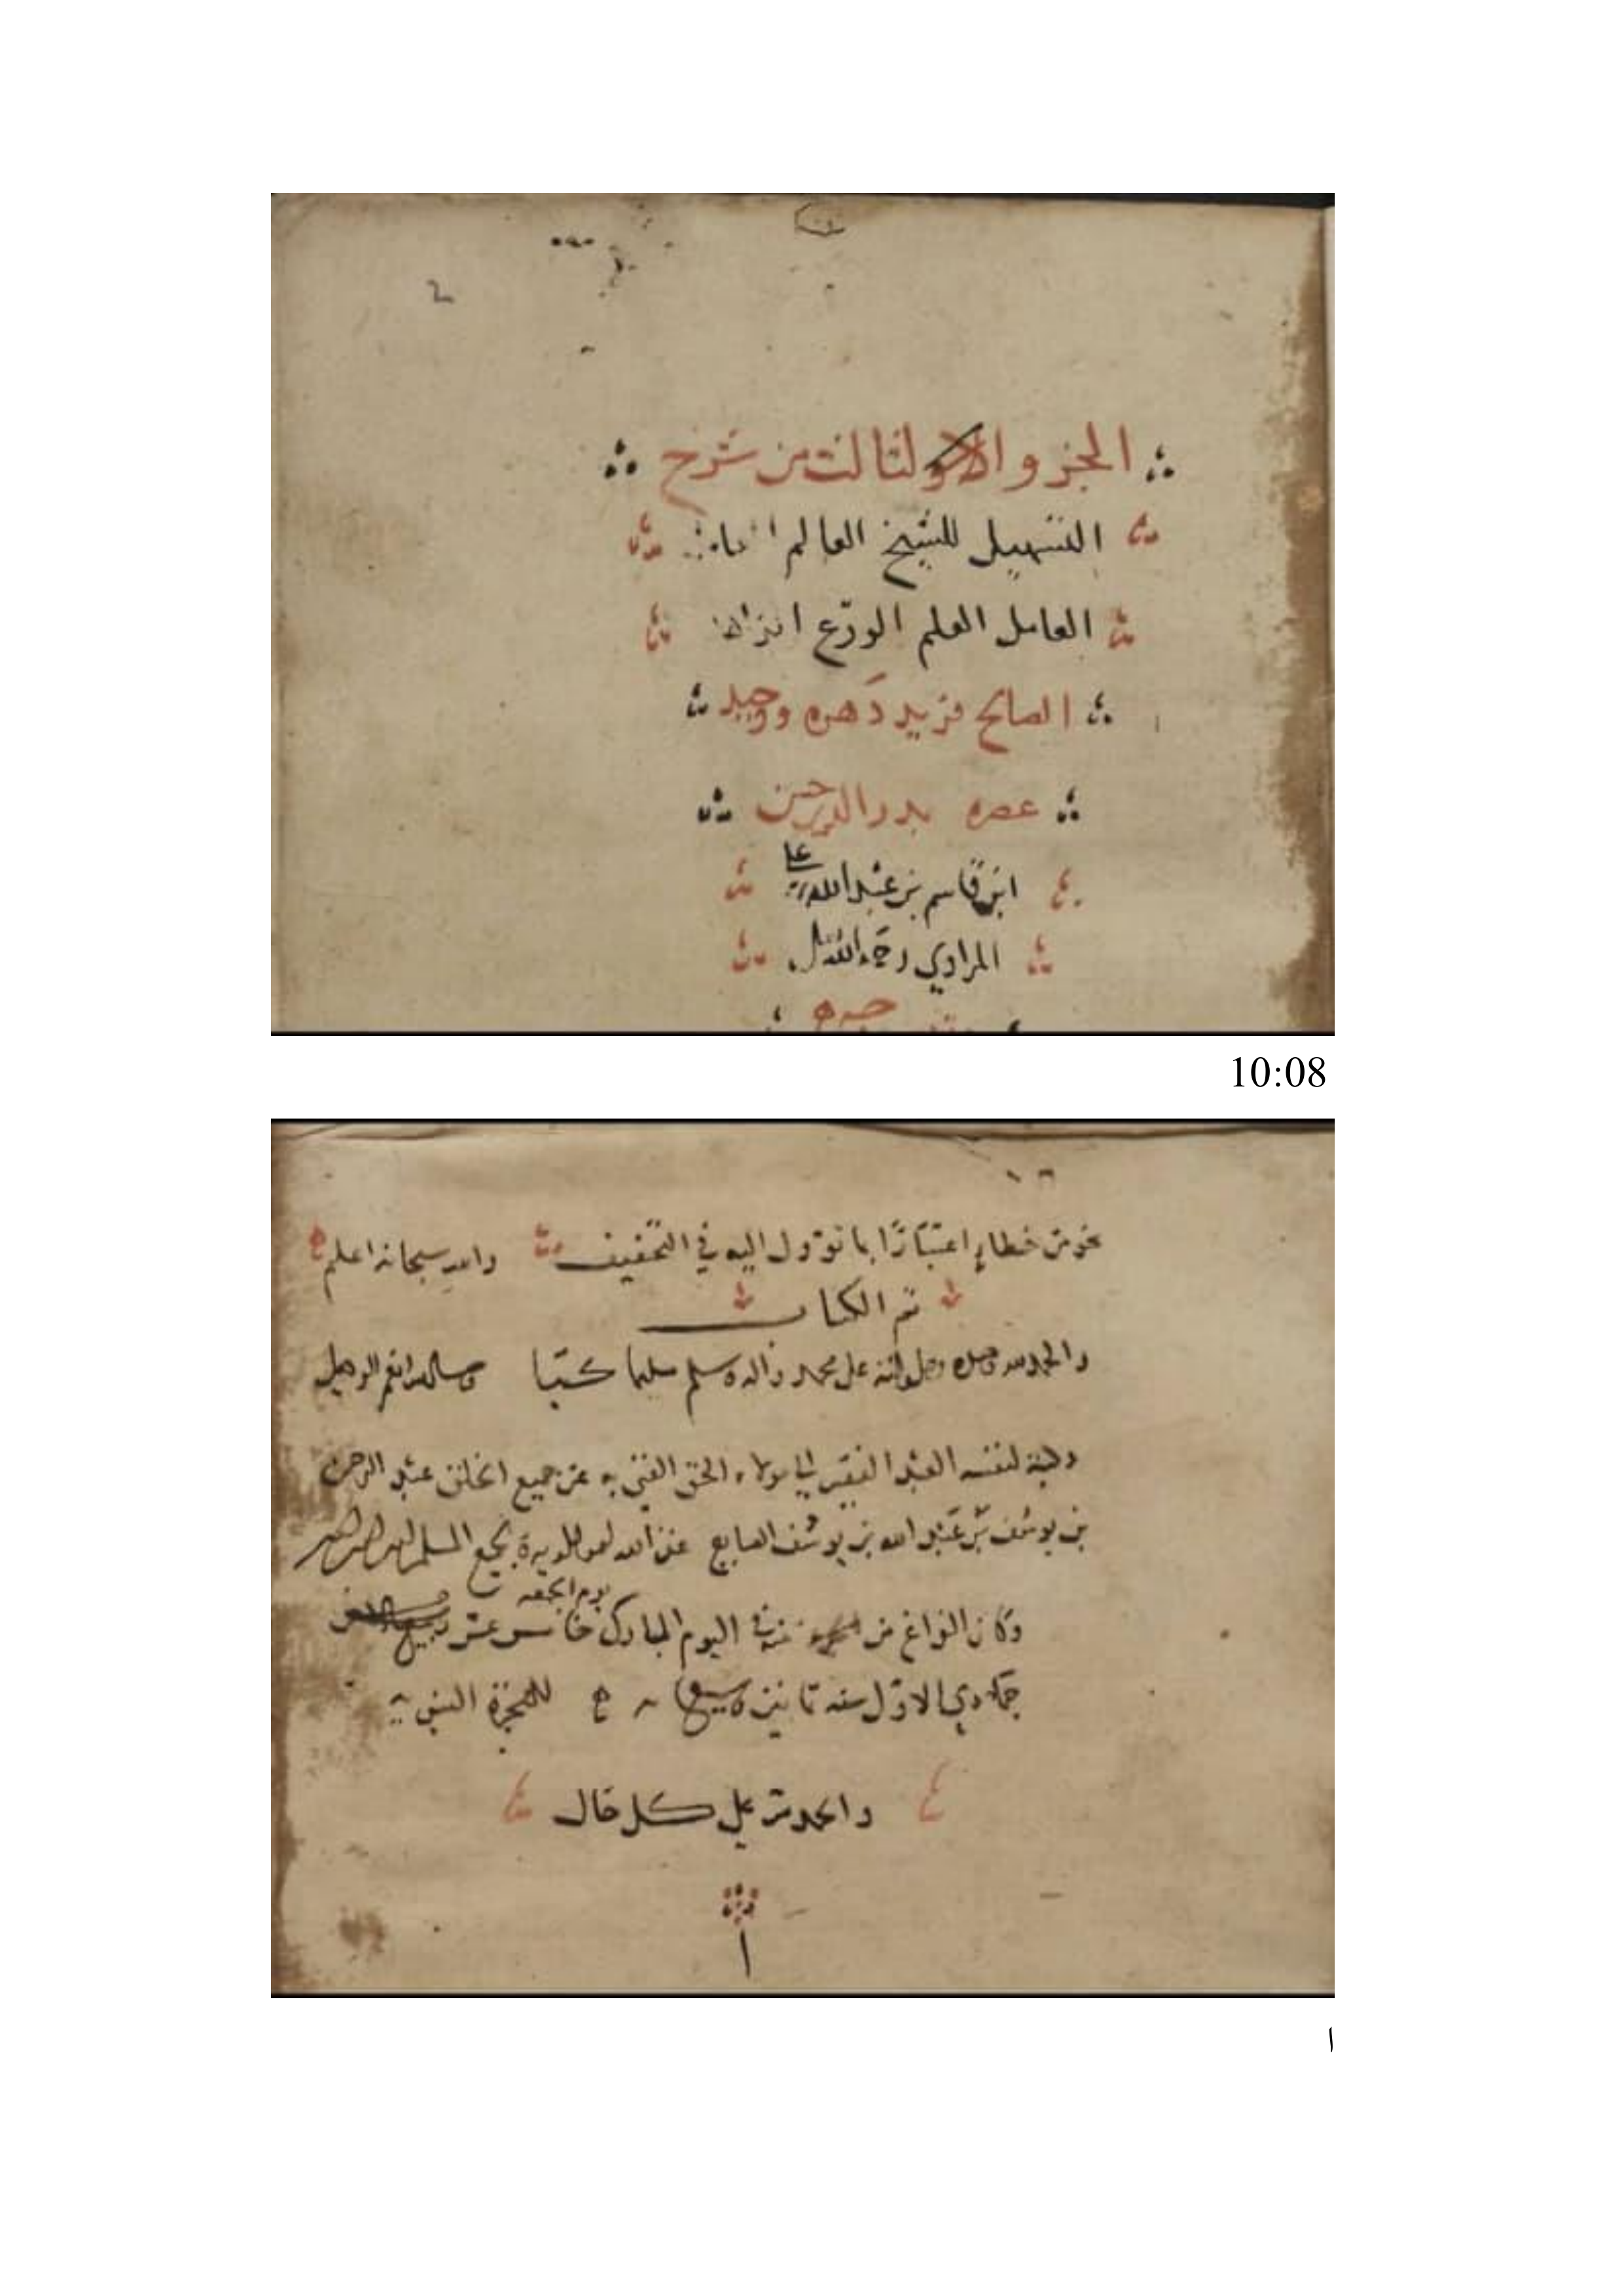 الجزو الثالث من شرح
التسهيل للشيخ العالم
العامل العلم الورع
الصالح فريد دهره ووحيد
عصره بدر الدين حسن
ابن قاسم بن عبد الله بن علي
المرادي رحمه الله
10:08
نحو من خطاء اعتبارًا بما تؤول اليه في التخفيف والله سبحانه اعلم
تم الكتاب
والحمد لله وحده وصلواته على محمد واله وسلم تسليما كتبا وحسبنا الله ونعم الوكيل
وكتبه لنفسه العبد الفقير الى مولاه الحق الغني به عن جميع الخلق عبد الرحمن
بن يوسف بن عبد الله بن يوسف الصايغ غفر الله له ولوالديه ولجميع المسلمين
يوم الجمعه
وكان الفراغ من في اليوم المبارك خامس عشر
جمادي الاول سنه للهجرة النبويه
والحمد لله على كل حال
ا